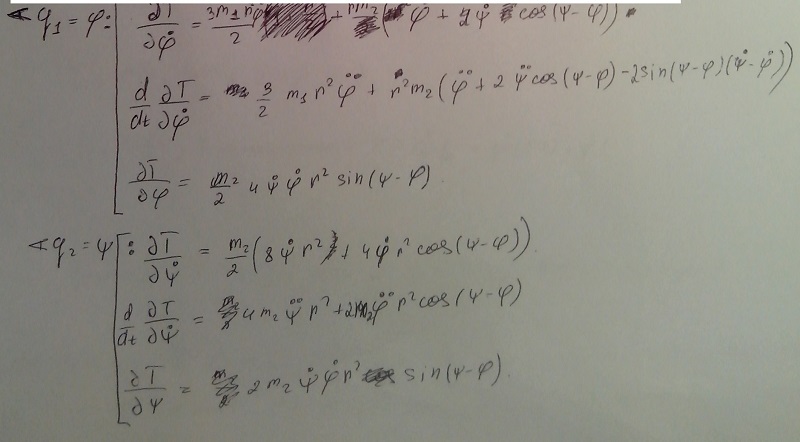 ∢ q₁ = φ: ∂T/∂φ̇ = 3m₁r²φ̇/2 + (φ̇ + 2ψ̇ cos(ψ-φ))
d/dt ∂T/∂φ̇ = 3/2 m₁ r² φ̈ + r² m₂ (φ̈ + 2 ψ̈ cos(ψ-φ) - 2 sin(ψ-φ)(ψ̇ - φ̇))
∂T/∂φ = m₂/2 4 ψ̇ φ̇ r² sin(ψ-φ)
∢ q₂ = ψ: ∂T/∂ψ̇ = m₂/2 (8 ψ̇ r² + 4 φ̇ r² cos(ψ-φ))
d/dt ∂T/∂ψ̇ = 4 m₂ ψ̈ r² + 2 m₂ φ̈ r² cos(ψ-φ)
∂T/∂ψ = 2 m₂ ψ̇ φ̇ r² sin(ψ-φ).